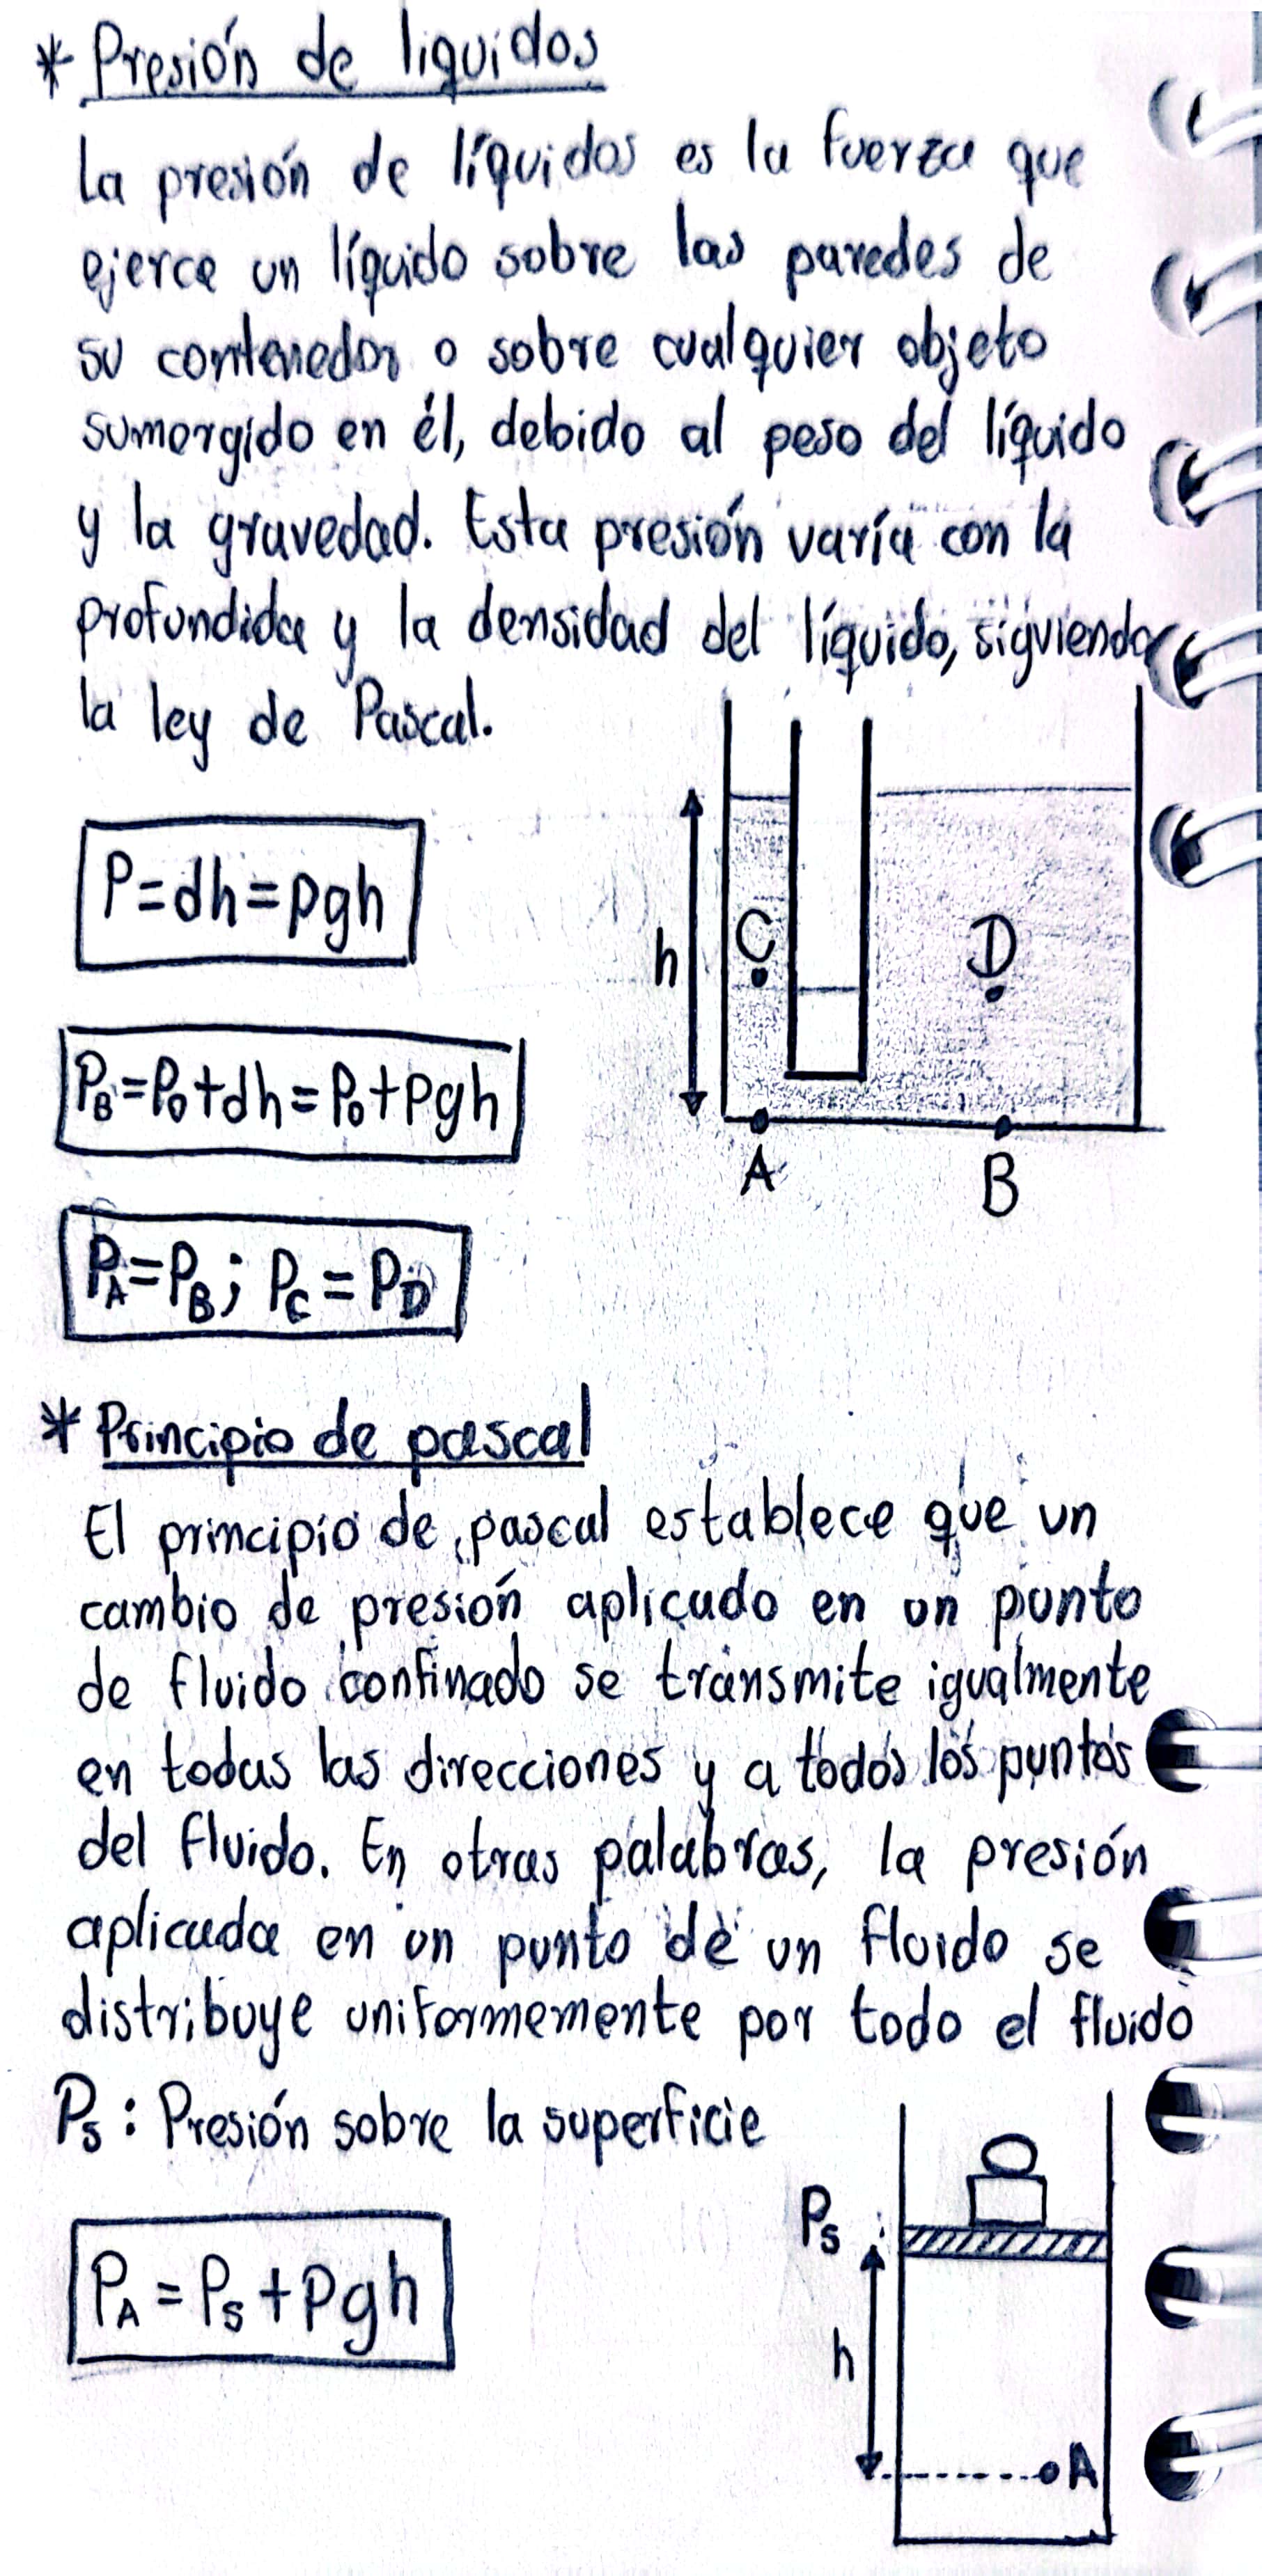 * Presión de liquidos
La presión de líquidos es la fuerza que
ejerce un líquido sobre las paredes de
su contenedor o sobre cualquier objeto
sumergido en él, debido al peso del líquido
y la gravedad. Esta presión varía con la
profundida y la densidad del líquido, siguiendo
la ley de Pascal.
P=dh=ρgh
P_B=P_0+dh=P_0+ρgh
P_A=P_B; P_C=P_D
h
C
D
A
B
* Principio de pascal
El principio de pascal establece que un
cambio de presión aplicado en un punto
de fluido confinado se transmite igualmente
en todas las direcciones y a todos los puntos
del fluido. En otras palabras, la presión
aplicada en un punto de un fluido se
distribuye uniformemente por todo el fluido
P_s: Presión sobre la superficie
P_A = P_s + ρgh
P_s
h
A